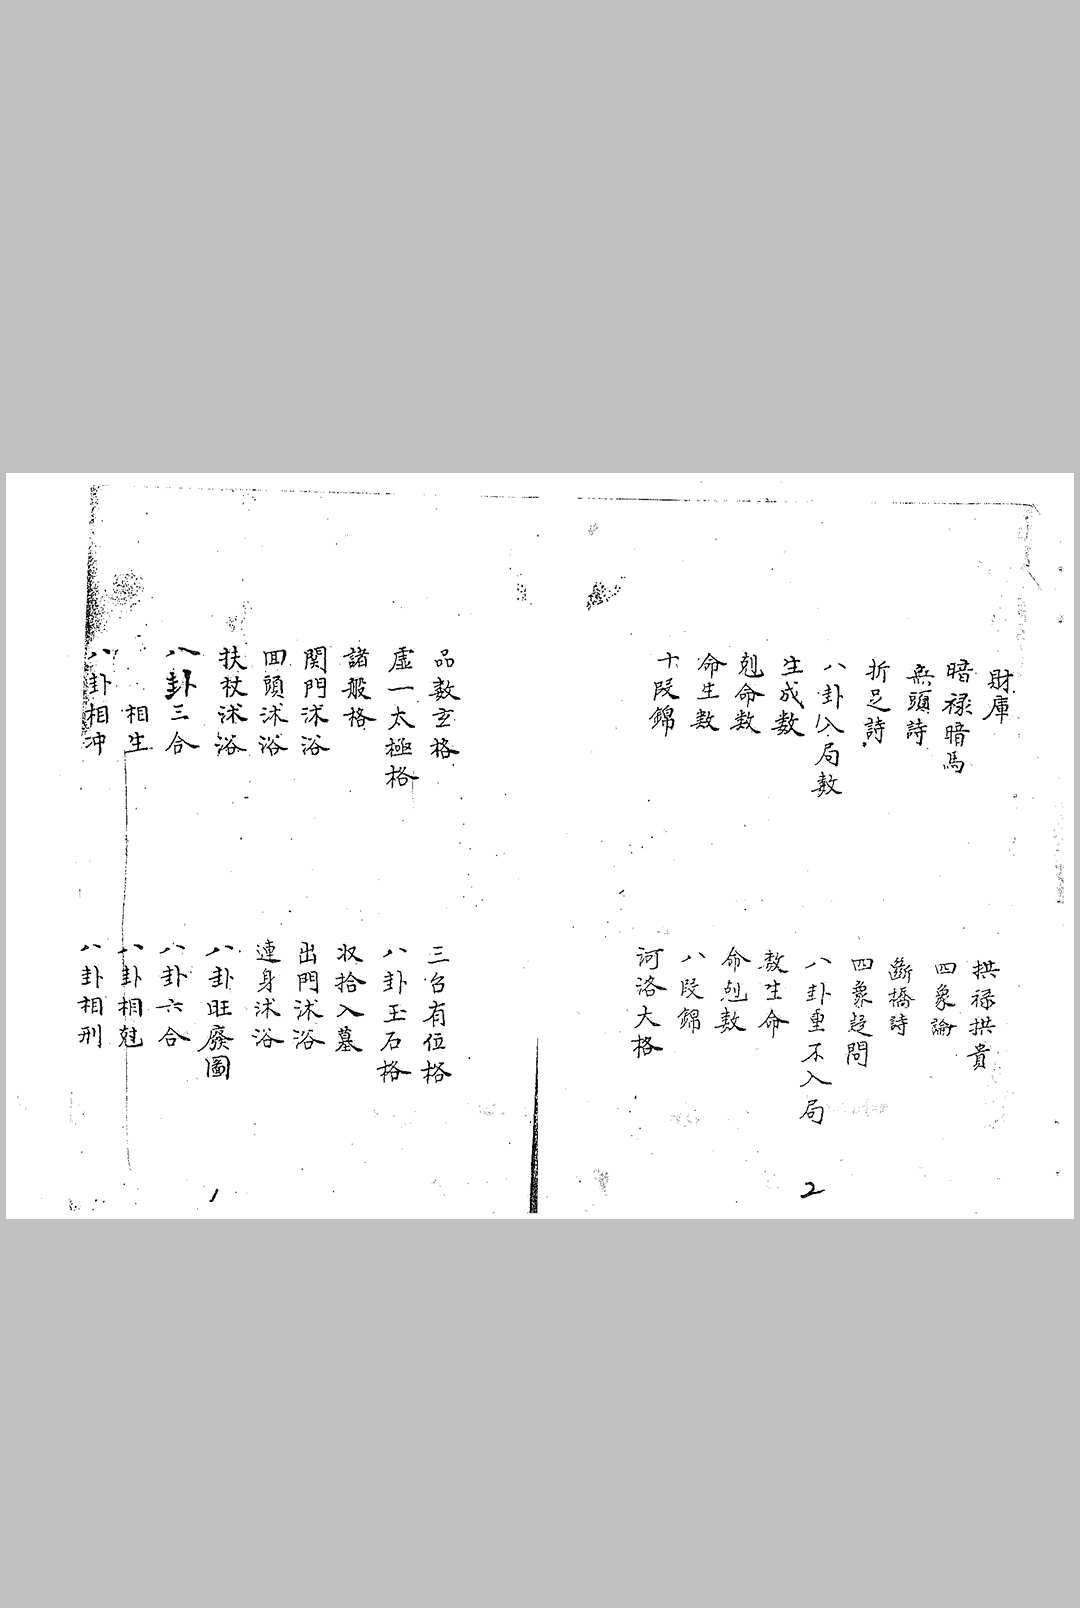 財庫
拱禄拱貴
暗禄暗馬
四象論
無頭詩
斷橋詩
折足詩
四象疑問
八卦入局数
八卦重不入局
生成数
数生命
剋命数
命剋数
命生数
八段錦
十段錦
河洛大格
品数玄格
三台有位格
虛一太極格
八卦玉石格
諸般格
収拾入墓
関門沭浴
出門沭浴
回頭沭浴
連身沭浴
扶杖沭浴
八卦旺廢圖
八卦三合
八卦六合
相生
八卦相尅
八卦相冲
八卦相刑
1
2